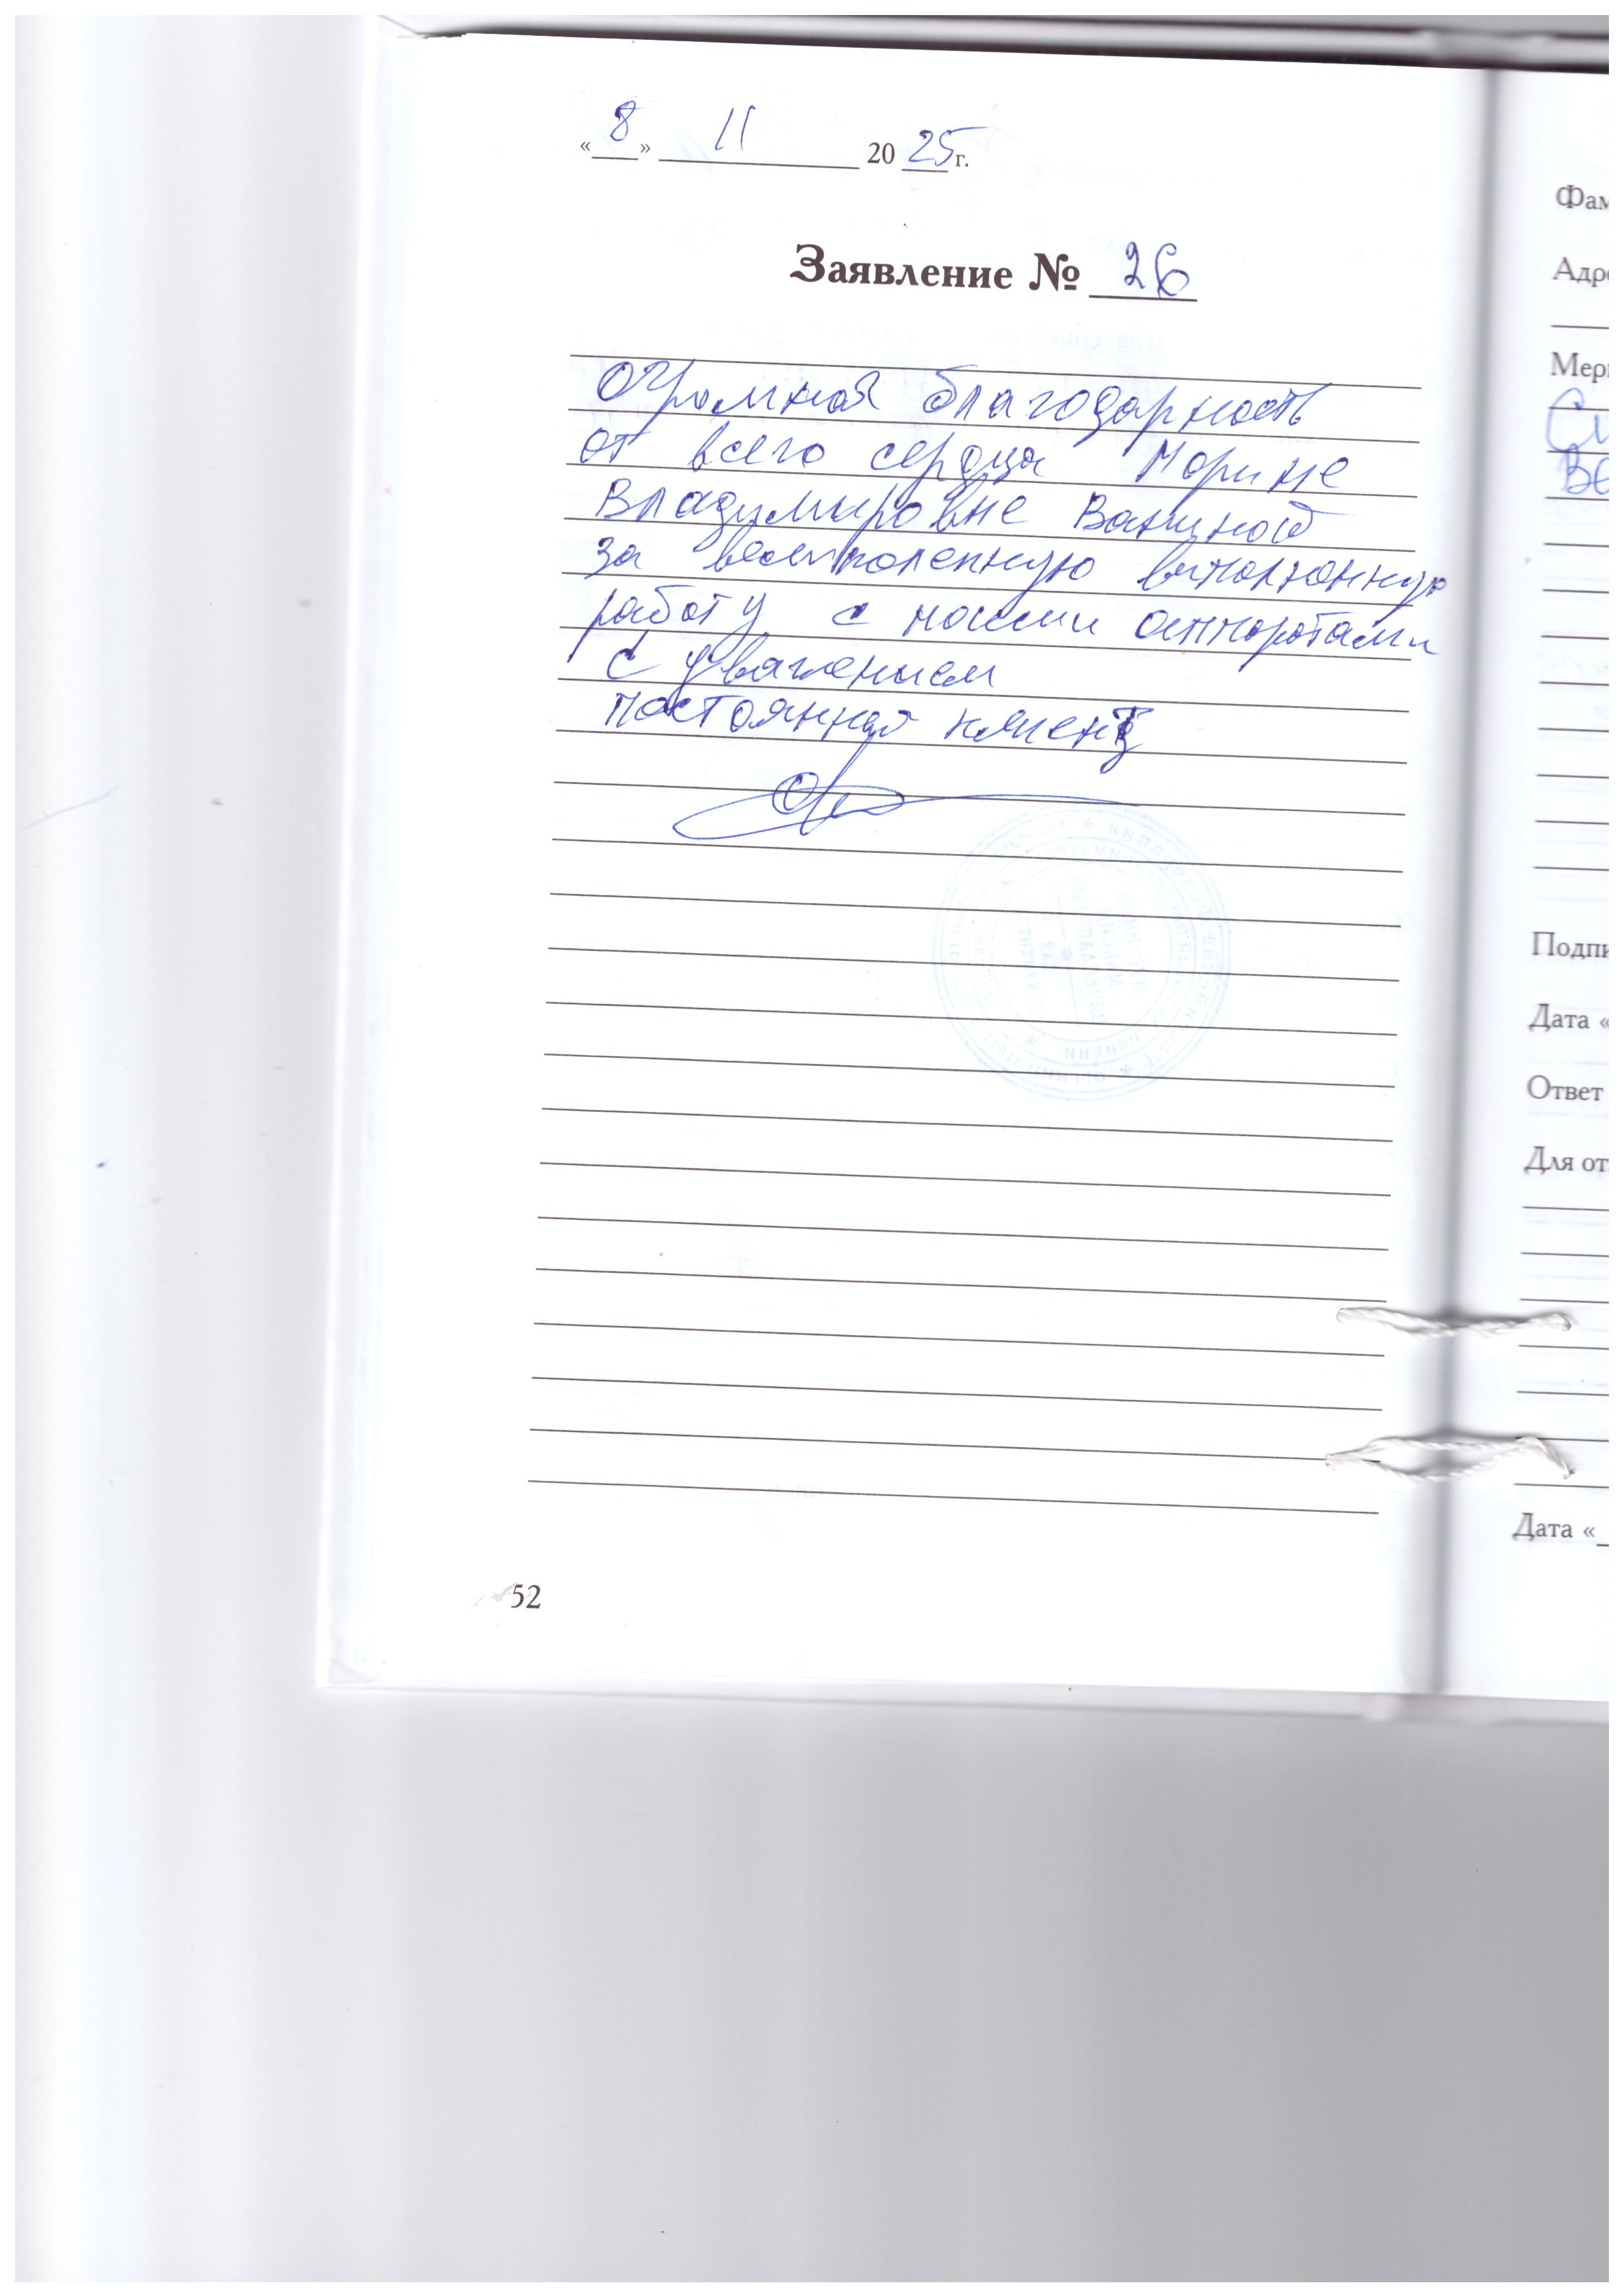 «8» 11 2025 г.
Заявление № 26
Огромная благодарность
от всего сердца Марине
Владимировне Вашиной
за великолепную выполненную
работу с моими аппаратами
С уважением
постоянная клиент
52
Фам
Адре
Мер
Подпи
Дата «
Ответ
Для от
Дата «